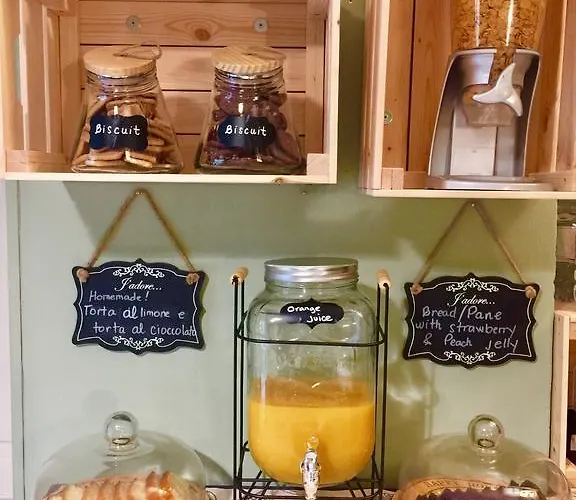 Biscuit
Biscuit
J'adore...
Homemade!
Torta al limone e
torta al cioccolato
Orange
juice
J'adore...
Bread/Pane
with strawberry
& Peach jelly